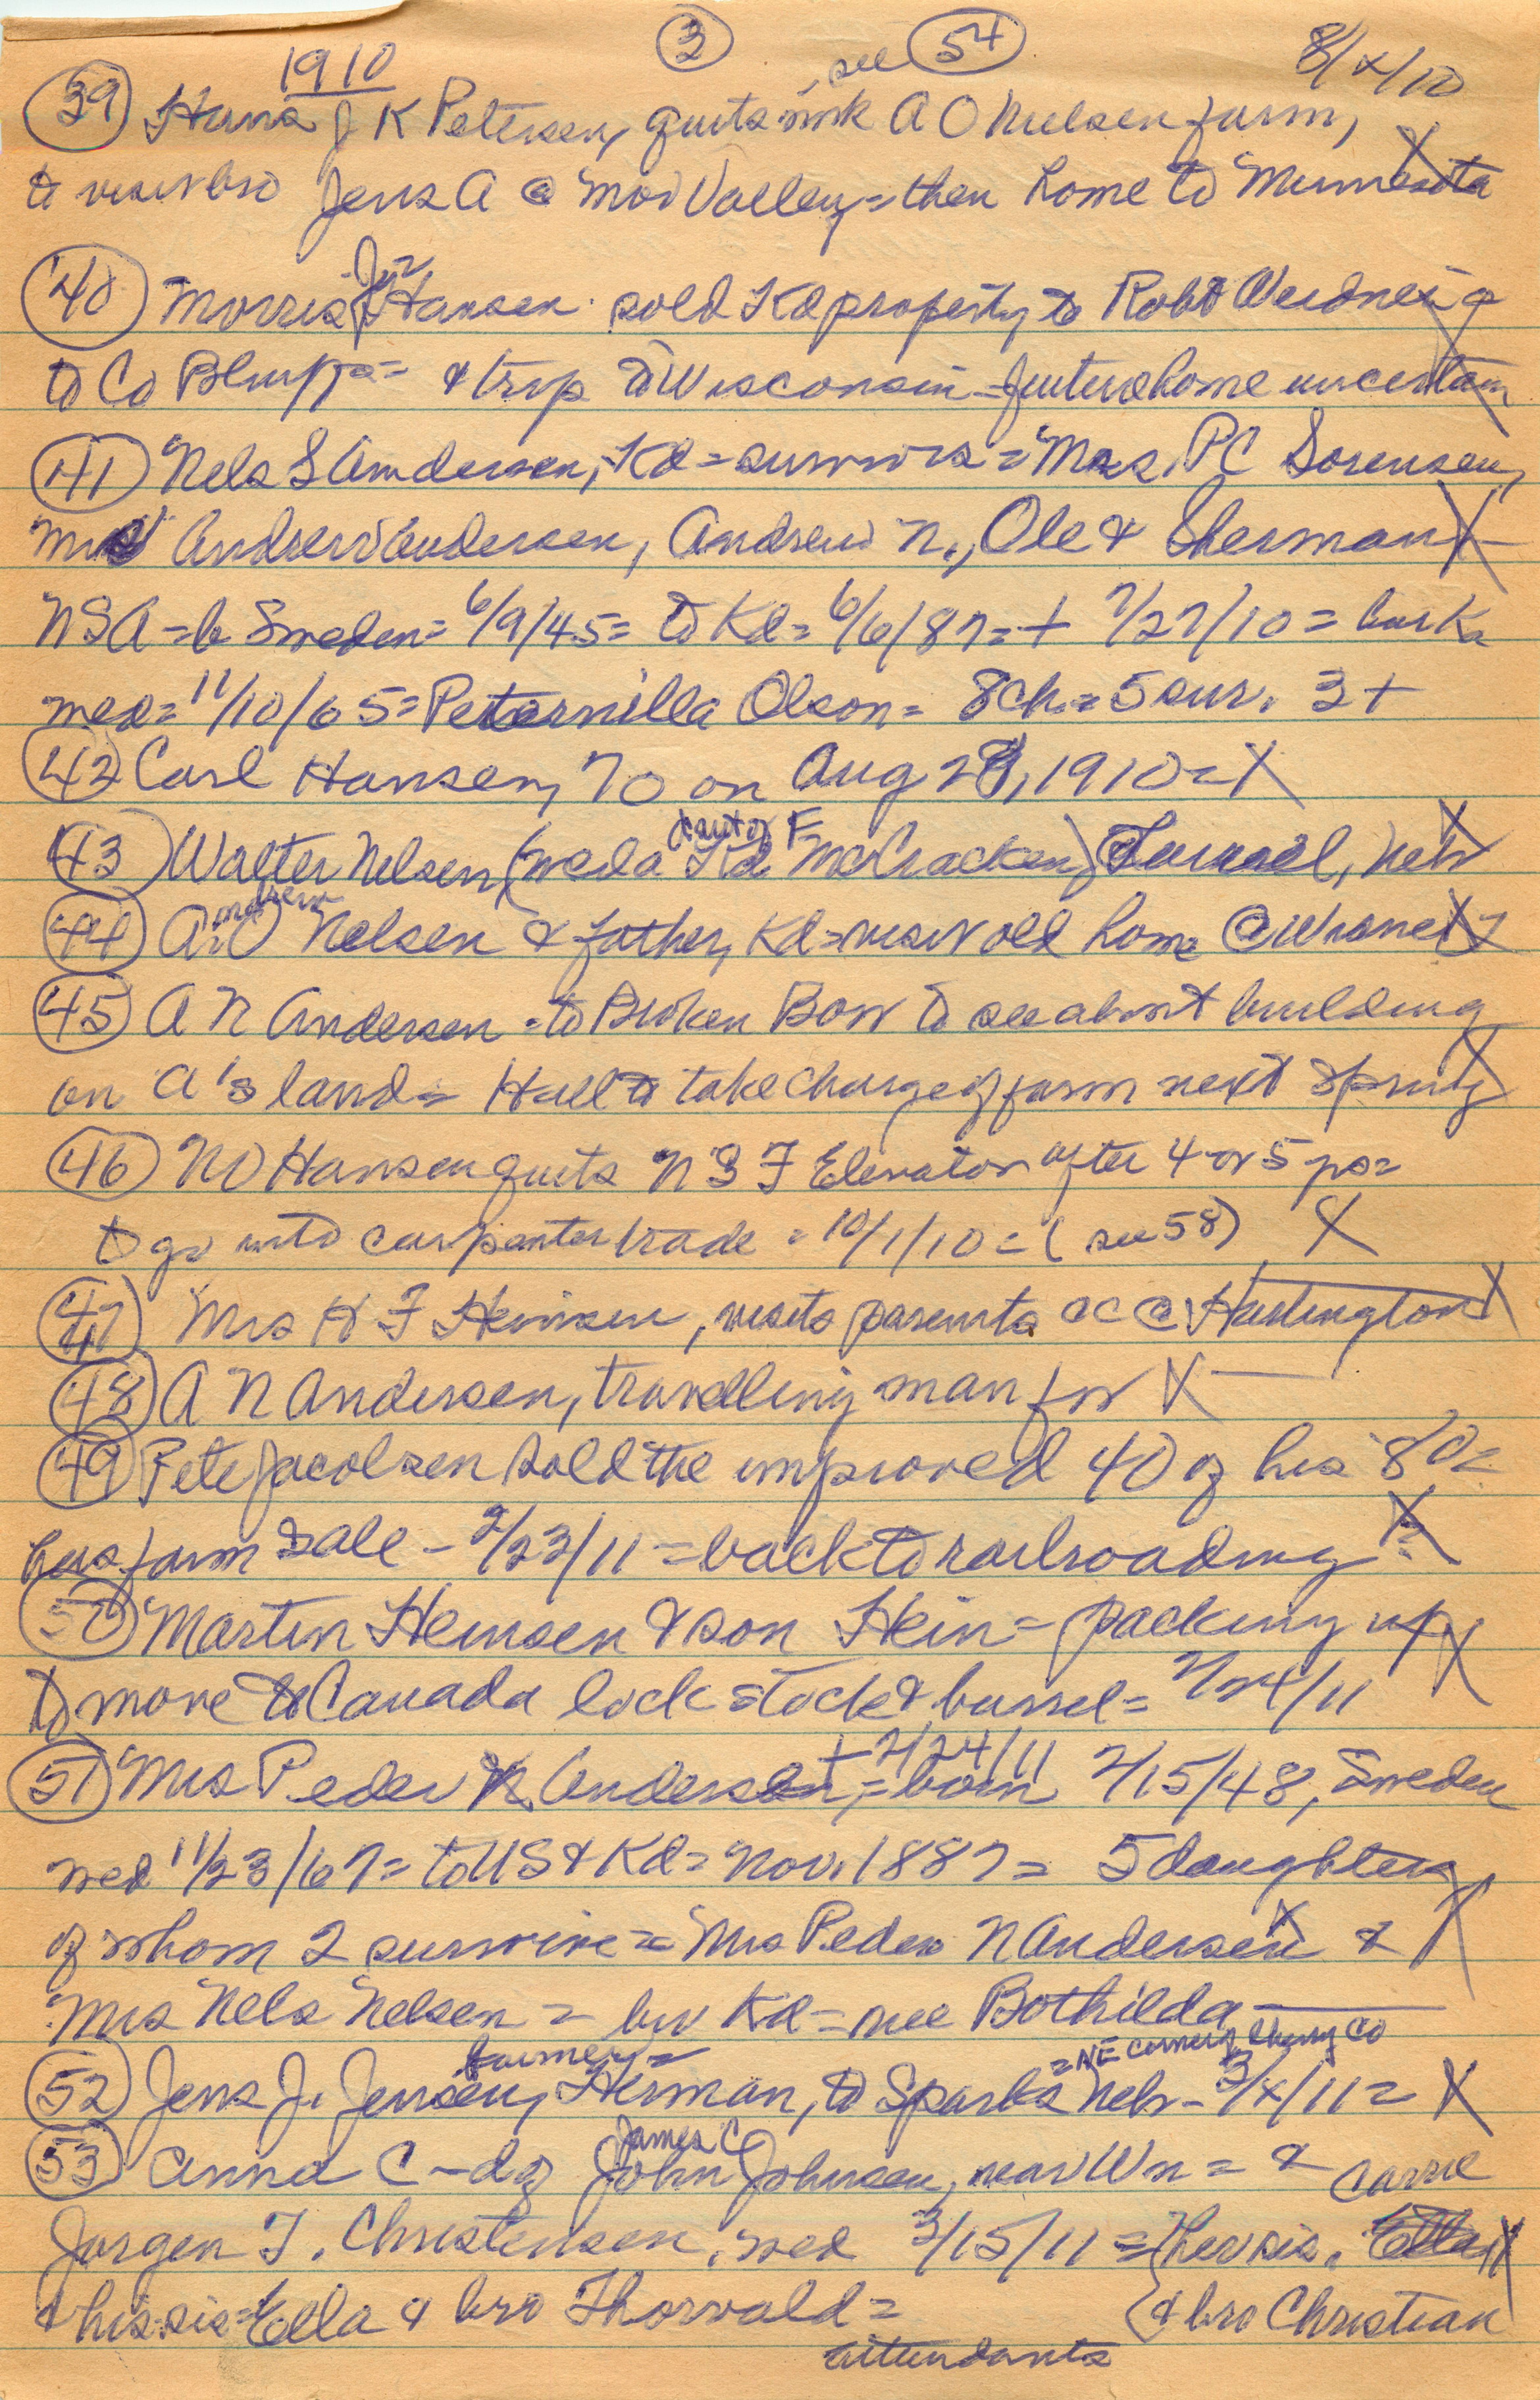 1910 ③ see 54 8/x/10
39 Hans J K Petersen, quits work A O Nielsen farm,
to visit bro Jens A @ Mo Valley = then home to Minnesota
Jr
40 Morris Hansen sold Kd property to Robt Weidner &
to Co Bluffs = & trip to Wisconsin = future home uncertain
41 Nels S Andersen, Kd = survivors = Mrs. P C Sorensen,
Mrs Andrew Andersen, Andrew N., Ole & Sherman X
NSA = b Sweden = 6/9/45 = to Kd = 6/6/87 = + 7/27/10 =
wed = 11/10/65 = Peternilla Olson = 8 ch = 5 sur. 3 +
42 Carl Hansen, 70 on Aug 28, 1910 = X
43 Walter Nelsen, (wed a Kd McCracken) Neb
Andrew
44 A Nelsen & father, Kd = visit old home @
45 A N Andersen = to Broken Bow to see about building
on A's land = Hall to take charge of farm next Spring
46 N O Hansen quits N S F Elevator after 4 or 5 yrs =
to go into carpenter trade = 10/1/10 = (see 58) X
47 Mrs H F Heinsen, visits parents @ Hartington X
48 A N Andersen, travelling man for X
49 Pete Jacobsen sold the improved 40 of his 80 =
his farm sale - 2/23/11 = back to railroading X
50 Martin Heinsen & son Hein = packing up X
to move to Canada lock stock & barrel = 2/24/11
+ 2/24/11
51 Mrs Peder N. Andersen, = born 2/15/48, Sweden
wed 11/23/67 = to US & Kd = Nov. 1887 = 5 daughters
of whom 2 survive = Mrs Peder N Andersen & X
Mrs Nels Nelsen = bur Kd = nee Bothilda
farmer = = NE corner of Cherry Co
52 Jens J. Jensen, Herman, to Sparks Neb - 3/x/11 = X
James C
53 Anna C - d of John Johnsen, near Wn = &
Carrie
Jorgen T. Christensen, wed 3/15/11 = her sis. Ella X
& his sis = Ella & bro Thorvald = & bro Christian
attendants